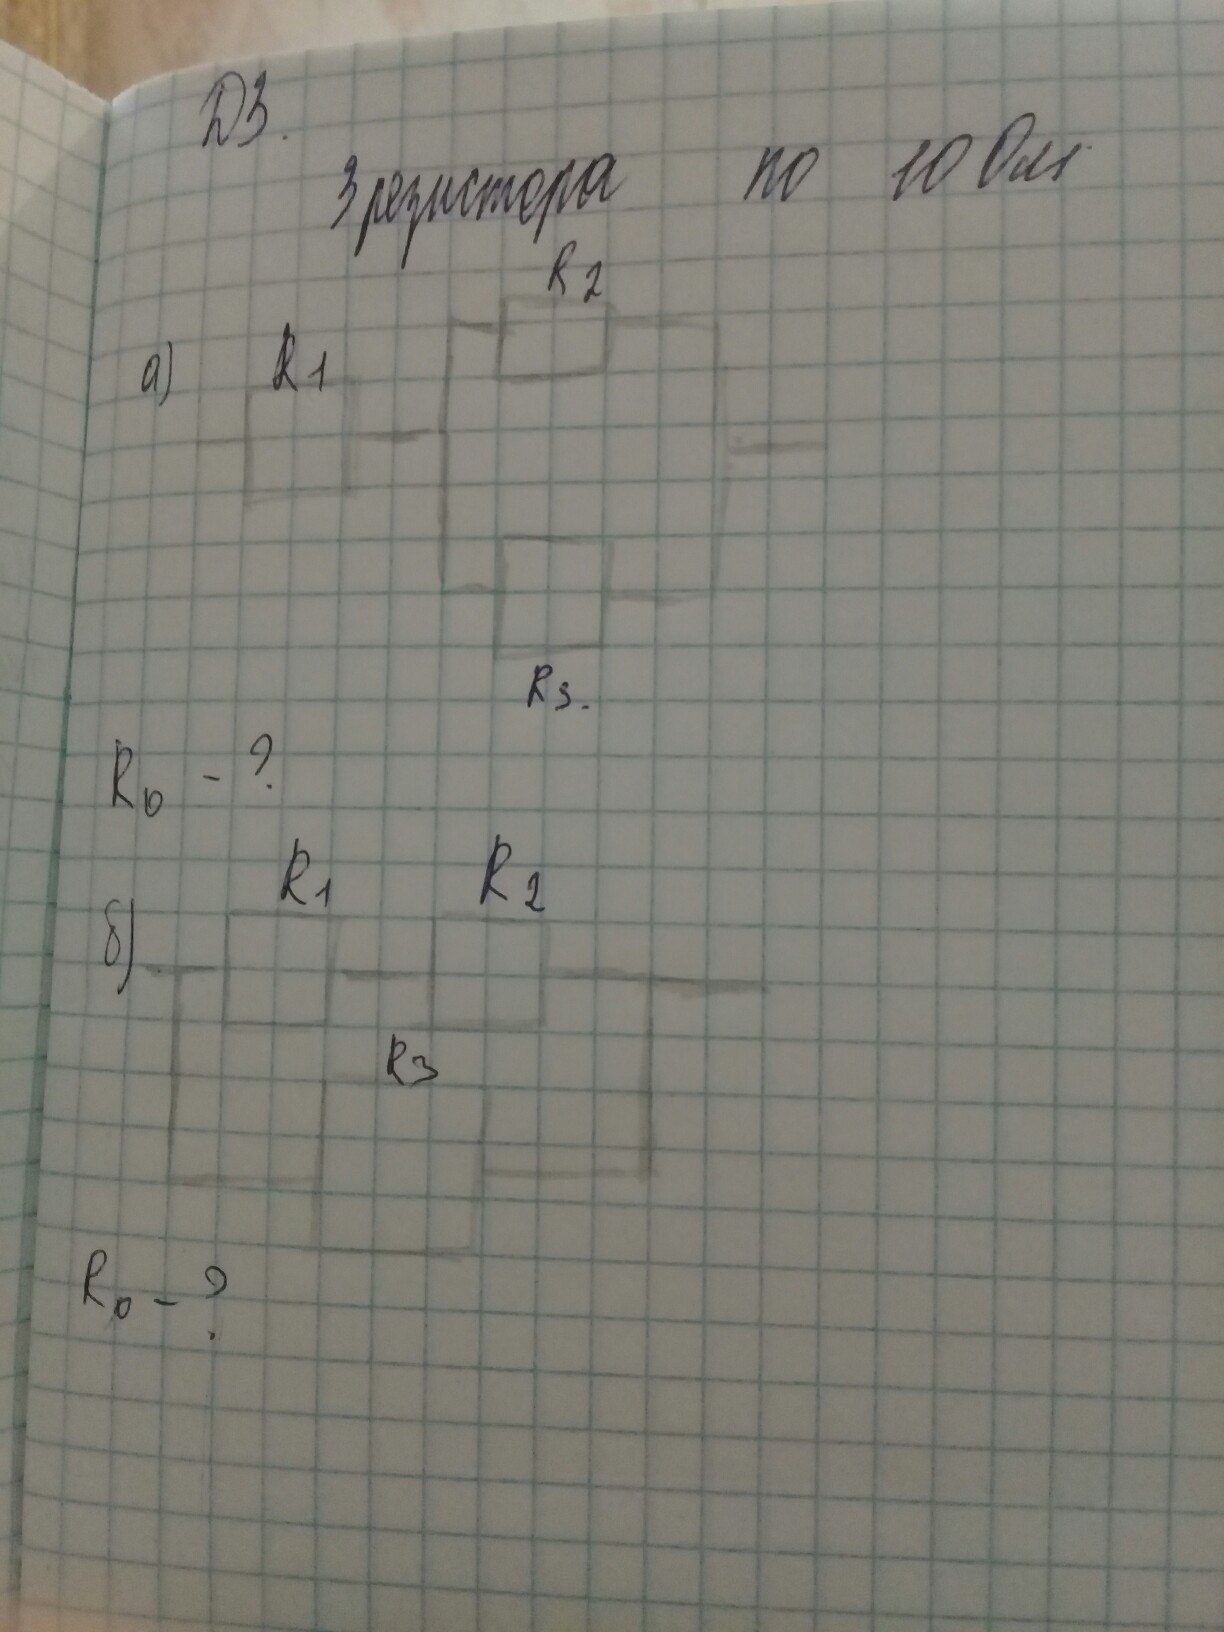 ДЗ.
3 резистора по 10 Ом
R2
а) R1
R3.
R0 - ?
R1 R2
б)
R3
R0 - ?